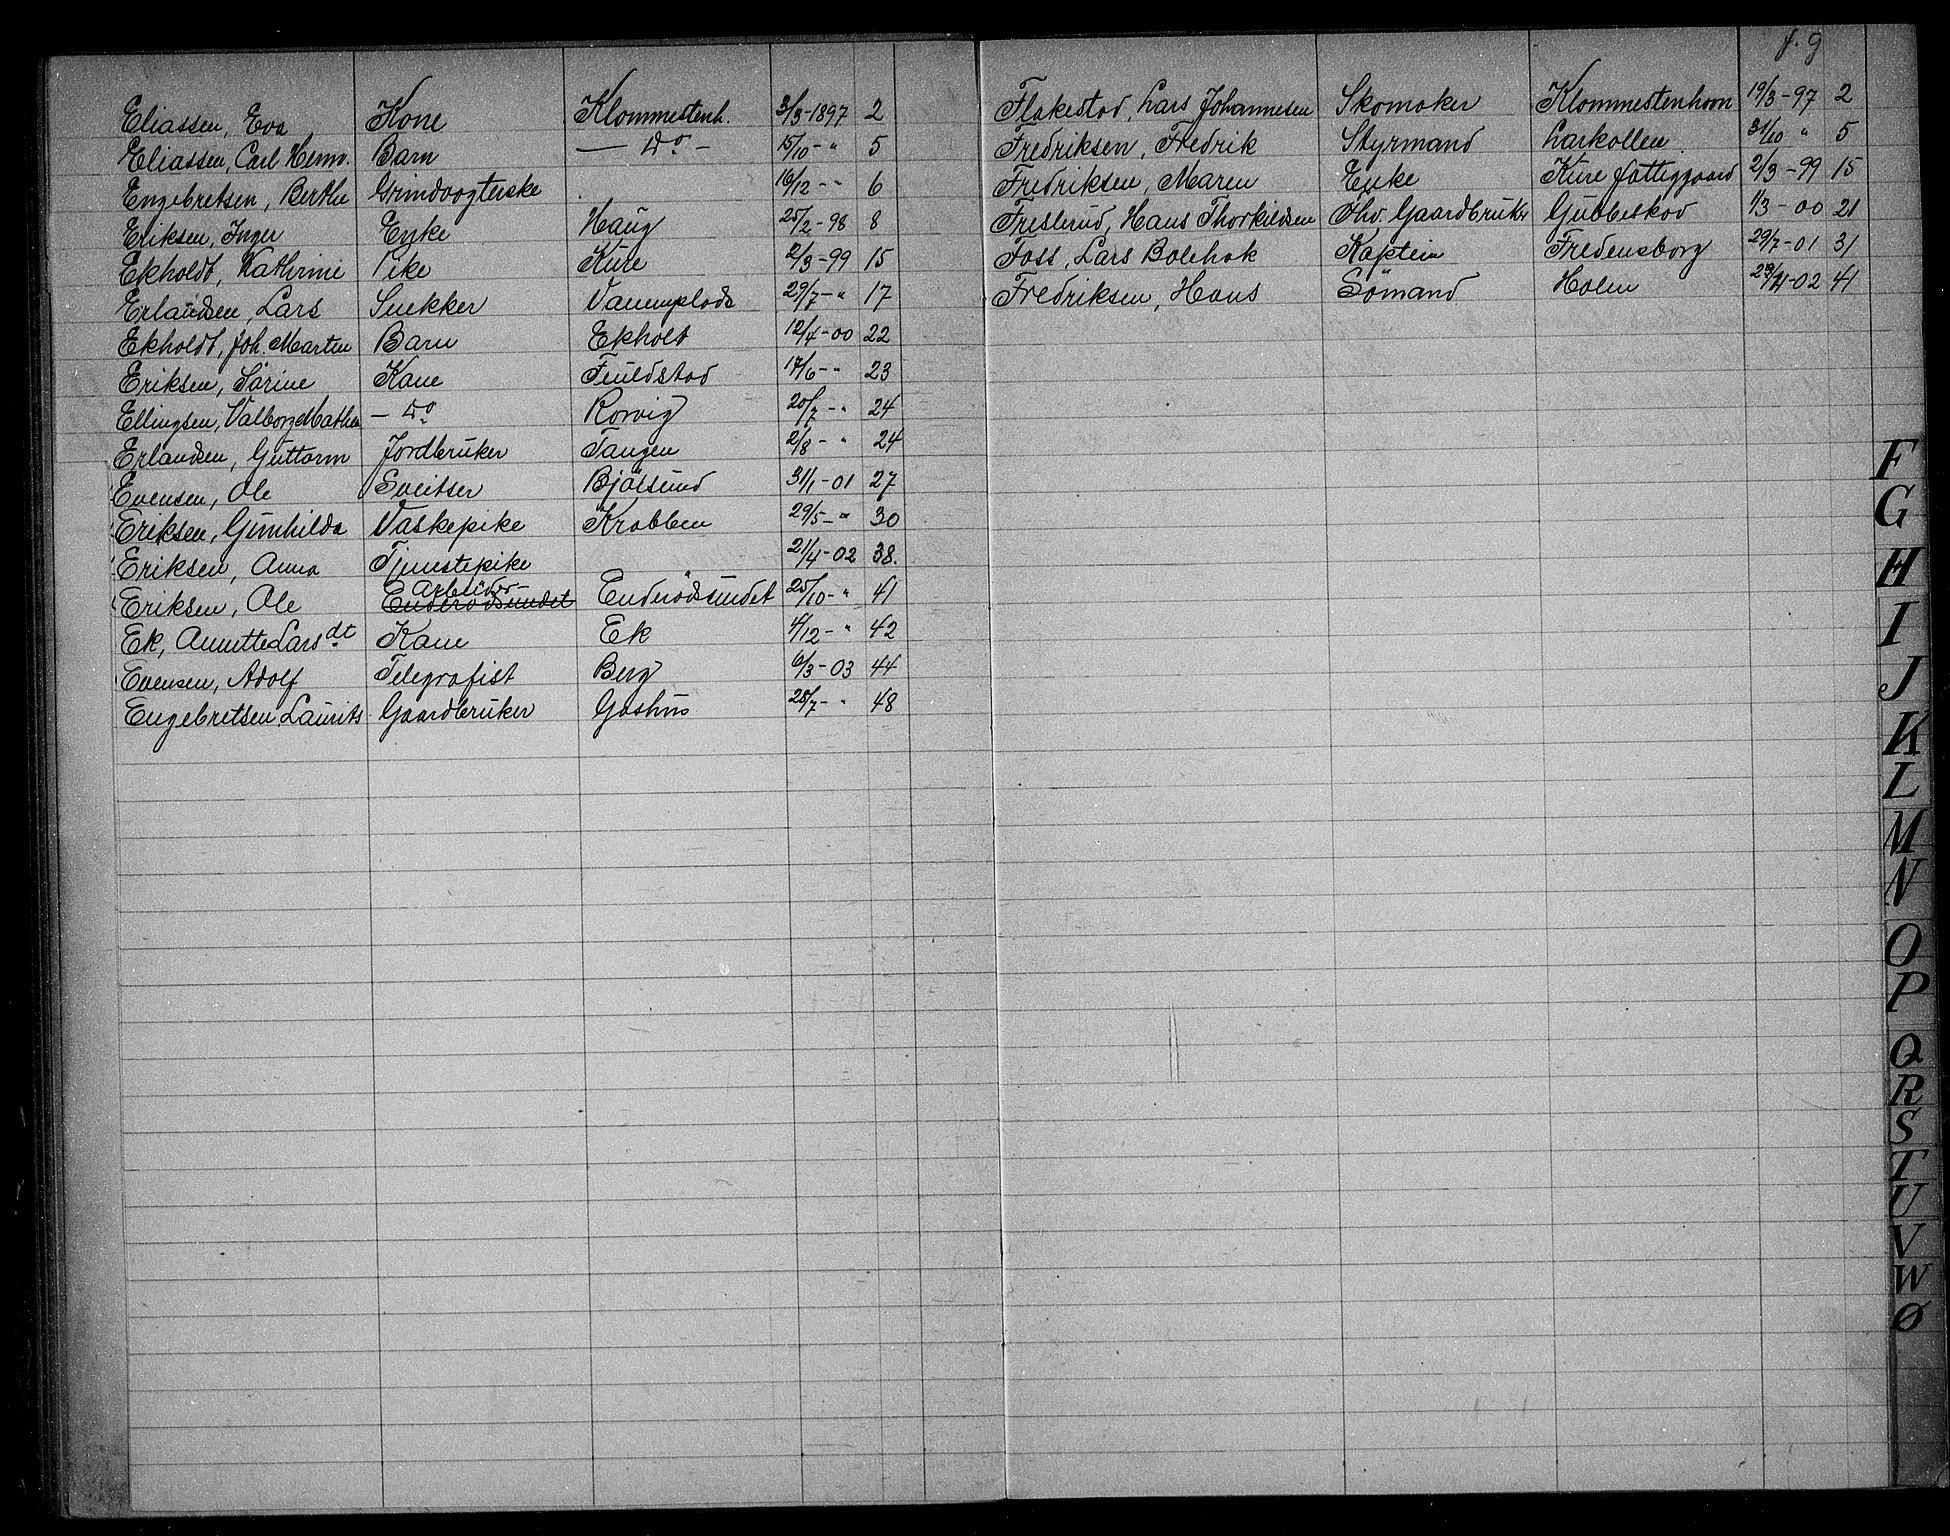 Eliassen, Eva Kone Klommestenh. 3/3-1897 2
Eliassen, Carl Henn. Barn — Do - 15/10 - " 5
Engebretsen, Berthe Grindvogterske 16/12 - " 6
Eriksen, Inger Enke Haug 25/2-98 8
Ekholdt, Kathrine Pike Kure 2/3-99 15
Erlandsen, Lars Snekker Vanemplads 29/7 - " 17
Ekholdt, Joh. Marten Barn Ekholt 12/4-00 22
Eriksen, Sørine Kone Fuldstad 17/6 - " 23
Ellingsen, Valborg Mathea — Do Rørvig 20/7 - " 24
Erlandsen, Guttorm Jordbruker Tangen 2/8 - " 24
Evensen, Ole Sveitser Bjølsund 31/1-01 27
Eriksen, Gunhilda Vaskepike Krabben 29/5 - " 30
Eriksen, Anna Tjenestepike 21/4-02 38.
Eriksen, Ole Arbeider Enderødsundet Enderødsundet 25/10 - " 41
Ek, Annette Larsdt Kone Ek 4/12 - " 42
Evensen, Adolf Telegrafist Berg 6/3-03 44
Engebretsen, Laurits Gaardbruker Gashus 28/7 - " 48
f. 9
Flakestad, Lars Johannesen Skomaker Klommestenhom 19/3-97 2
Fredriksen, Fredrik Styrmand Larkollen 31/10 " 5
Fredriksen, Maren Enke Kure fattiggaard 2/3-99 15
Freslerud, Hans Thorkildsen Fhv. Gaardbruker Gubbeskov 1/3-00 21
Foss, Lars Bolehak Kaptein Fredensborg 29/7-01 31
Fredriksen, Hans Sömand Holen 41
F
G
H
I
J
K
L
M
N
O
P
Q
R
S
T
U
V
W
Ø